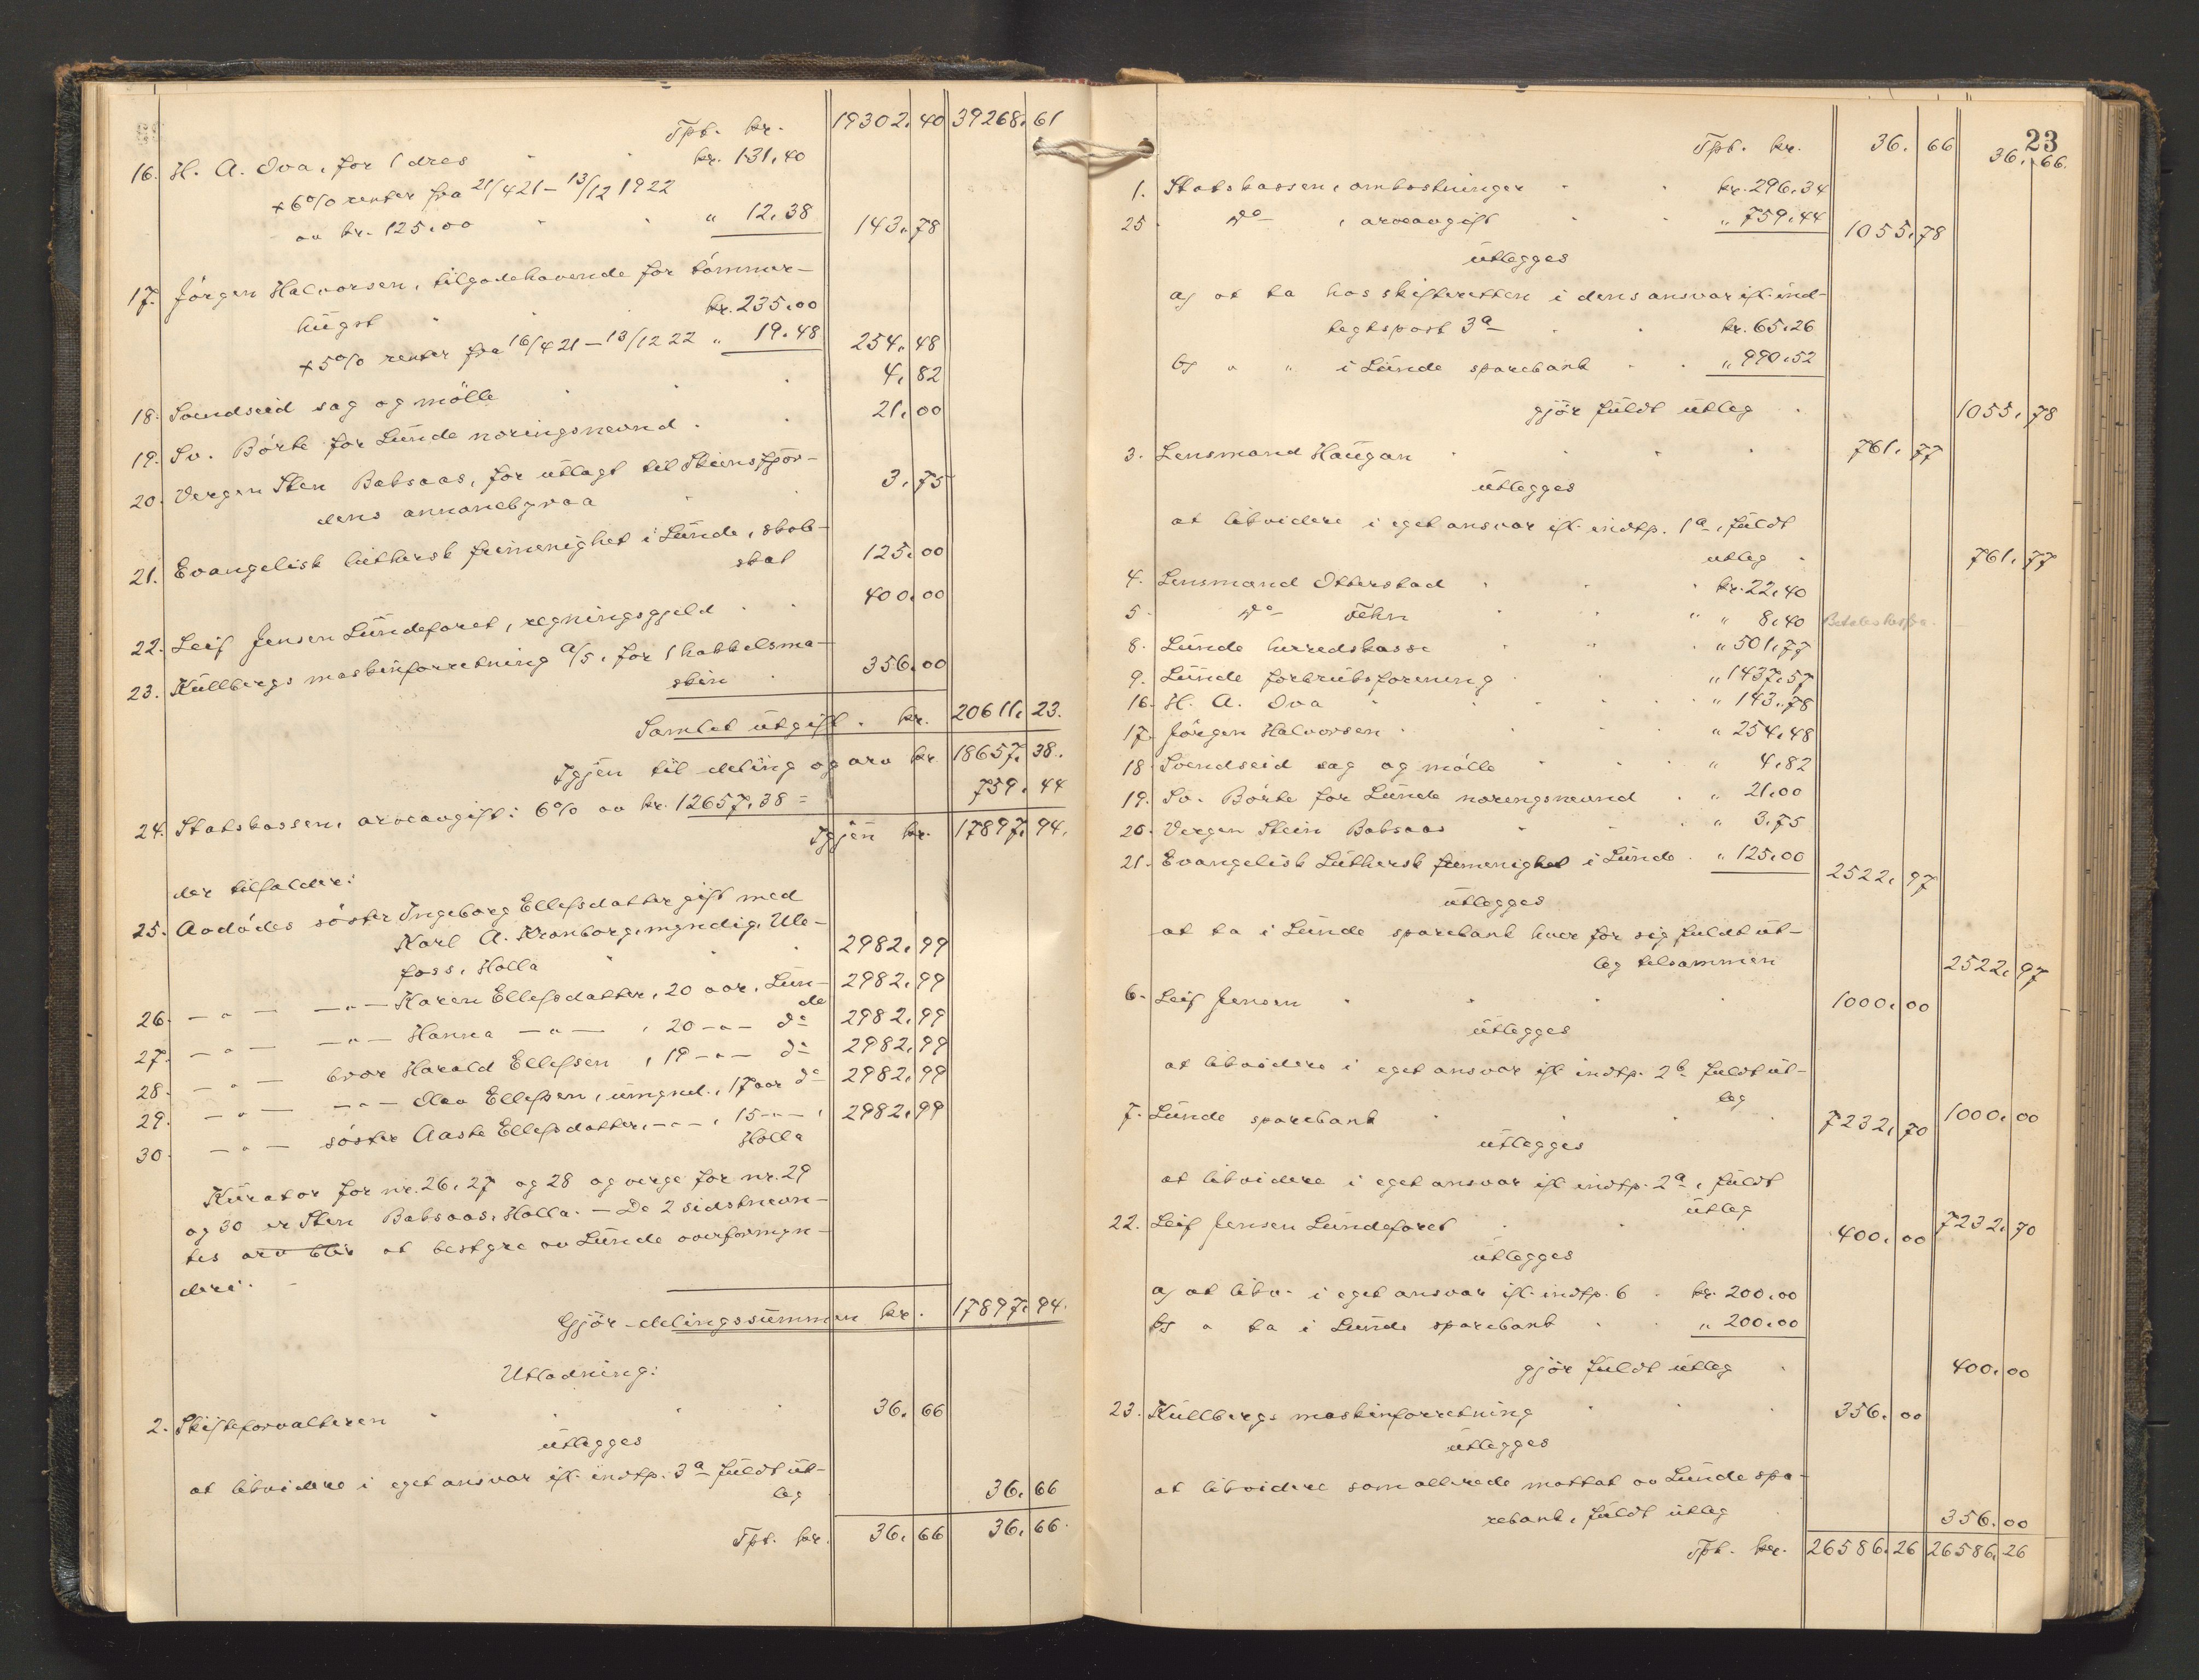 Tpt. kr. 19302. 40 39268. 61
16. H. A. Ova, for 1 dres kr. 131,40
+ 6% renter fra 21/4 21 – 13/12 1922
av kr. 125,00 " 12,38 143. 78
17. Jörgen Halvorsen, tilgodehavende for tömmer-
hügst kr. 235,00
+ 5% renter fra 16/4 21 – 13/12 22 " 19.48 254. 48
18. Svendseid sag og mölle 4. 82
19. Sv. Börte for Lünde noringsnevnd 21. 00
20. Vergen Sten Babsaas, for ütlagt til Skiensfjor-
dens annoncebyraa 3. 75
21. Evangelisk lüthersk frimenighet i Lünde, skole-
skat 125. 00
22. Leif Jensen Lündeforet, regningsgjeld 400. 00
23. Küllbergs maskinforretning a/s, for 1 hakkelsma-
skin 356. 00
Samlet ütgift kr. 20611. 23.
Igjen til deling og arv kr. 18657. 38.
24. Statskassen, arveavgift: 6% av kr. 12657,38 = 759. 44
Igjen kr. 17897. 94.
der tilfalder:
25. Avdödes söster Ingeborg Ellefsdatter gift med
Karl A. Kronborg, myndig, Ule-
foss, Holla 2982. 99
26. — " — — " — Karen Ellefsdatter, 20 aar, Lün-
de 2982. 99
27. — " — — " — Hanna — " — , 20 — " — do 2982. 99
28. — " — bror Harald Ellefsen , 19 — " — do 2982. 99
29. — " — — " — Olav Ellefsen, ümynd., 17 aar do 2982. 99
30. — " — söster Aaste Ellefsdatter, — " — , 15 — " — ,
Holla 2982. 99
Kürator for nr. 26, 27 og 28 og verge for nr. 29
og 30 er Sten Babsaas, Holla. — De 2 sidstnevn-
tes arv blir at bestyre av Lünde overformyn-
deri.
Gjör delingssümmen kr. 17897. 94.
Utlodning:
2. Skifteforvalteren 36. 66
ütlegges
at likvidere i eget ansvar ifl. indtp. 3a füldt üt-
leg 36. 66
Tpt. kr. 36. 66 36. 66.
23
Tpt. kr. 36. 66 36. 66.
1. Statskassen, omkostninger kr. 296,34
25 do , arveavgift " 759,44 1055. 78
ütlegges
a) at ta hos skifteretten i dens ansvar ifl. ind-
tegtspost 3a kr. 65,26
b) " " i Lünde sparebank " 990,52
gjör füldt ütleg 1055. 78
3. Lensmand Haügan 761. 77
ütlegges
at likvidere i eget ansvar ifl. indtp. 1a, füldt
utleg 761. 77
4. Lensmand Otterstad kr. 22,40
5. do Fehn " 8,40
8. Lünde herredskasse " 501,77
9. Lünde forbrüksforening " 1437,57
16. H. A. Ova " 143,78
17. Jörgen Halvorsen " 254,48
18. Svendseid sag og mölle " 4,82
19. Sv. Börte for Lünde noringsnevnd " 21,00
20. Vergen Stein Babsaas " 3,75
21. Evangelisk Lüthersk frimenighet i Lünde " 125,00 2522. 97
ütlegges
at ta i Lünde sparebank hver for sig füldt üt-
leg tilsammen 2522. 97
6. Leif Jensen 1000. 00
ütlegges
at likvidere i eget ansvar ifl. indtp. 2b füldt üt-
leg 1000. 00
7. Lünde sparebank 7232. 70
ütlegges
at likvidere i eget ansvar ifl. indtp. 2a, füldt
ütleg 7232. 70
22. Leif Jensen Lündeforet 400. 00
ütlegges
a) at likv. i eget ansvar ifl. indtp. 6 kr. 200,00
b) " ta i Lünde sparebank " 200,00
gjör füldt ütleg 400. 00
23. Küllbergs maskinforretning 356. 00
ütlegges
at likvidere som allerede mottat av Lünde spa-
rebank, füldt ütleg 356. 00
Tpt. kr. 26586. 26 26586. 26